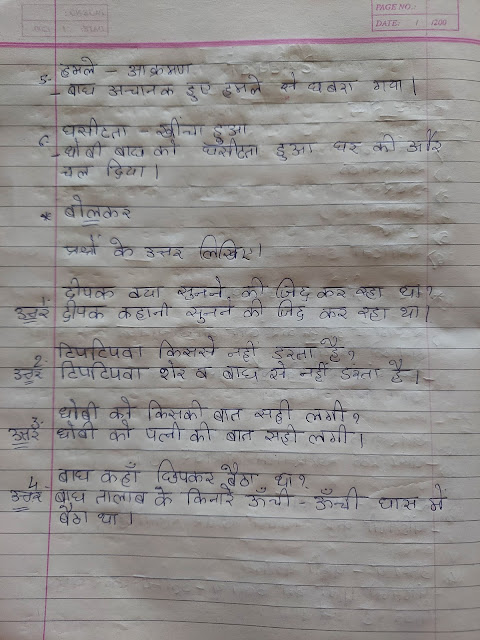 PAGE NO.:
DATE: / /200
5. हमले - आक्रमण
- बाघ अचानक हुए हमले से घबरा गया।
6. घसीटता - खींचा हुआ
- धोबी बाघ को घसीटता हुआ घर की ओर
चल दिया।
* बोलकर
प्रश्नों के उत्तर लिखिए।
1. दीपक क्या सुनने की जिद कर रहा था?
उत्तर: दीपक कहानी सुनने की जिद कर रहा था।
2. टिपटिपवा किससे नहीं डरता है?
उत्तर: टिपटिपवा शेर व बाघ से नहीं डरता है।
3. धोबी को किसकी बात सही लगी?
उत्तर: धोबी को पत्नी की बात सही लगी।
4. बाघ कहाँ छिपकर बैठा था?
उत्तर: बाघ तालाब के किनारे ऊँची - ऊँची घास में
बैठा था।